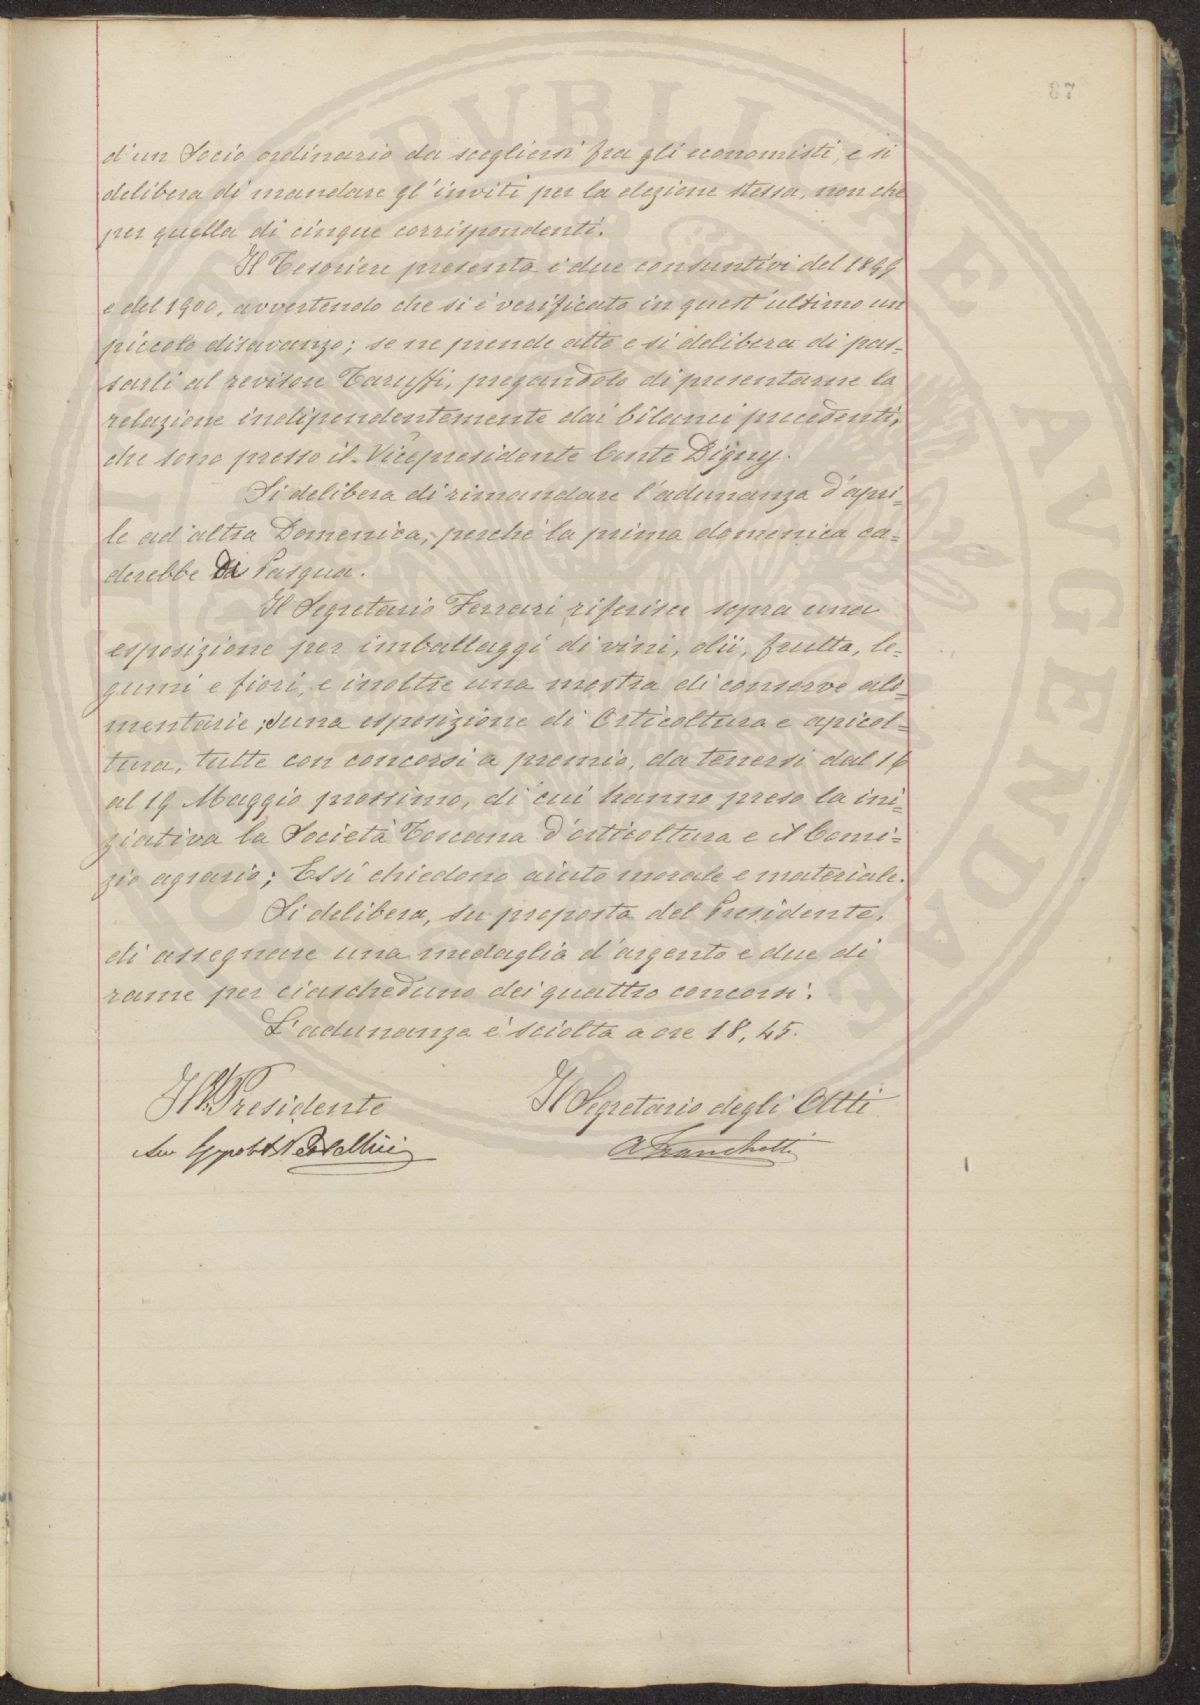 87
d'un Socio ordinario da scegliersi fra gli economisti, e si
delibera di mandare gl'inviti per la elezione stessa, non che
per quella di cinque corrispondenti.
Il Tesoriere presenta i due consuntivi del 1899
e del 1900, avvertendo che si è verificato in quest'ultimo un
piccolo disavanzo; se ne prende atto e si delibera di pas=
sarli al revisore Taruffi, pregandolo di presentarne la
relazione indipendentemente dai bilanci precedenti,
che sono presso il Vicepresidente Conte Digny.
Si delibera di rimandare l'adunanza d'apri=
le ad altra Domenica, perché la prima domenica ca=
derebbe di Pasqua.
Il Segretario Ferrari riferisce sopra una
esposizione per imballaggi di vini, olii, frutta, le=
gumi e fiori, e inoltre una mostra di conserve ali=
mentarie; una esposizione di Orticoltura e apicol=
tura, tutte con concorsi a premio, da tenersi dal 16
al 19 Maggio prossimo, di cui hanno preso la ini=
ziativa la Società Toscana d'orticoltura e il Comi=
zio agrario; Essi chiedono aiuto morale e materiale.
Si delibera, su proposta del Presidente,
di assegnare una medaglia d'argento e due di
rame per ciascheduno dei quattro concorsi.
L'adunanza è sciolta a ore 18,45.
Il Presidente Il Segretario degli Atti
A Franchetti
PVBLICAE FELICITATE AVGENDAE